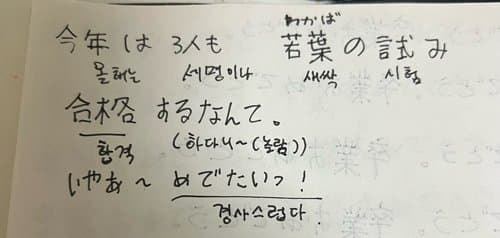 わかば
今年は 3人も 若葉の試み
올해는 세명이나 새싹 시험
合格するなんて。
합격 (하다니~(놀람))
いやあ～ めでたいっ！
경사스럽다